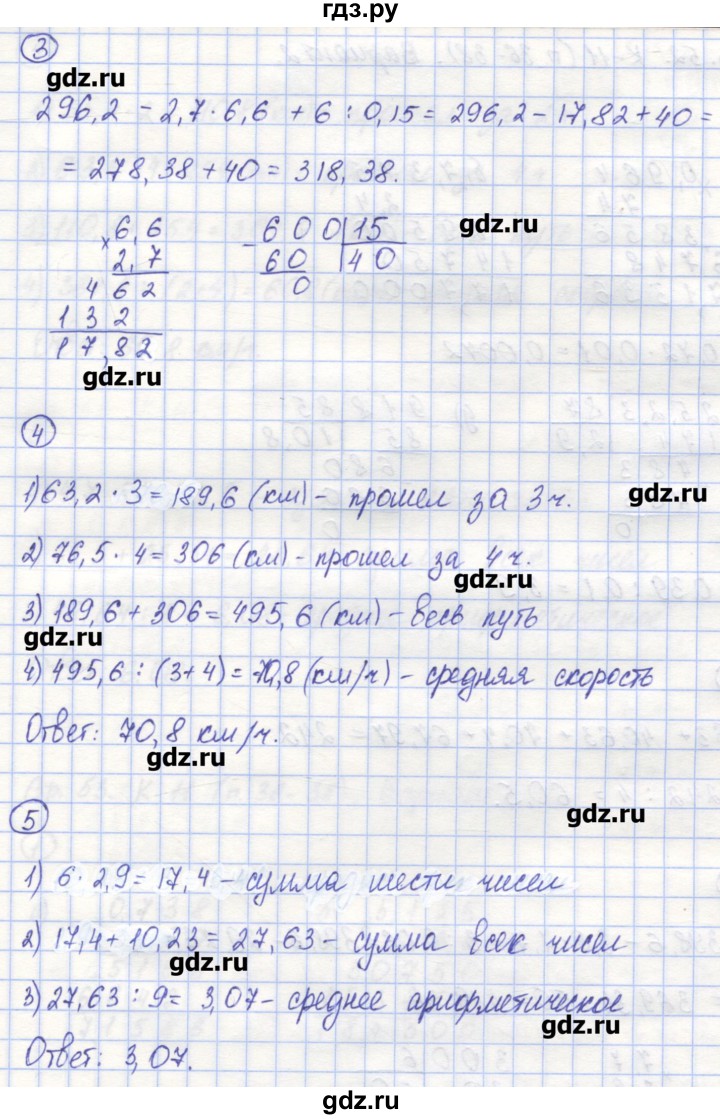 гдз.ру
3
gdz.ru
296,2 - 2,7·6,6 + 6 : 0,15 = 296,2 - 17,82 + 40 =
= 278,38 + 40 = 318,38.
gdz.ru
× 6,6
2,7
4 6 2
1 3 2
1 7,8 2
- 6 0 0 | 15
6 0 | 4 0
0
gdz.ru
4
1) 63,2 · 3 = 189,6 (км) - прошел за 3 ч.
gdz.ru
2) 76,5 · 4 = 306 (км) - прошел за 4 ч.
gdz.ru
3) 189,6 + 306 = 495,6 (км) - весь путь
gdz.ru
4) 495,6 : (3+4) = 70,8 (км/ч) - средняя скорость
Ответ: 70,8 км/ч.
gdz.ru
5
gdz.ru
1) 6 · 2,9 = 17,4 - сумма шести чисел
2) 17,4 + 10,23 = 27,63 - сумма всех чисел
gdz.ru
3) 27,63 : 9 = 3,07 - среднее арифметическое
gdz.ru
Ответ: 3,07.
gdz.ru